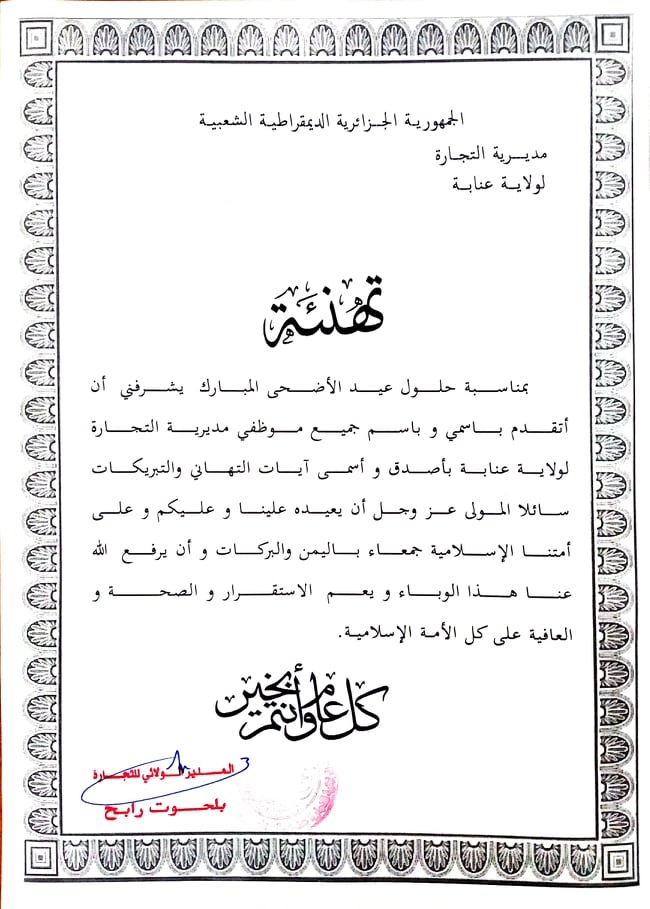 الجمهورية الجزائرية الديمقراطية الشعبية
مديرية التجارة
لولاية عنابة
تهنئة
بمناسبة حلول عيد الأضحى المبارك يشرفني أن
أتقدم باسمي و باسم جميع موظفي مديرية التجارة
لولاية عنابة بأصدق و أسمى آيات التهاني والتبريكات
سائلا المولى عز وجل أن يعيده علينا و عليكم و على
أمتنا الإسلامية جمعاء باليمن والبركات و أن يرفع الله
عنا هذا الوباء و يعم الاستقرار و الصحة و
العافية على كل الأمة الإسلامية.
كل عام وأنتم بخير
المدير الولائي للتجارة
بلحوت رابح